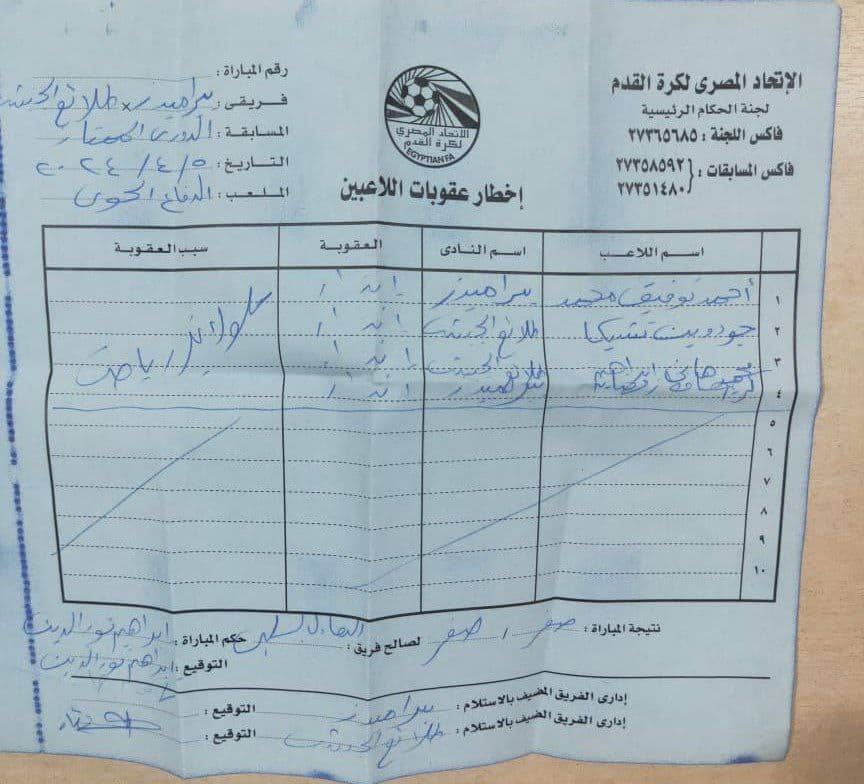 الإتحاد المصرى لكرة القدم
لجنة الحكام الرئيسية
فاكس اللجنة : ٢٧٣٦٥٦٨٥
فاكس المسابقات : ٢٧٣٥٨٥٩٢
٢٧٣٥١٤٨٠
الاتحاد المصرى
لكرة القدم
EGYPTIAN FA
إخطار عقوبات اللاعبين
رقم المباراة :
فريقى : بيراميدز × طلائع الجيش
المسابقة : الدورى الممتاز
التاريخ : ٥ / ٤ / ٢٠٢٤
الملعب : الدفاع الجوى
اسم اللاعب اسم النادى العقوبة سبب العقوبة
١ أحمد توفيق محمد بيراميدز إنذار
٢ جودوين تشيكا طلائع الجيش إنذار سلوك غير رياضى
٣ هانى ابراهيم طلائع الجيش إنذار
٤ كريم حافظ رمضان بيراميدز إنذار
٥
٦
٧
٨
٩
١٠
نتيجة المباراة : صفر / صفر لصالح فريق : التعادل السلبى حكم المباراة : ابراهيم نور الدين
التوقيع : ابراهيم نور الدين
إدارى الفريق المضيف بالاستلام : بيراميدز التوقيع :
إدارى الفريق الضيف بالاستلام : طلائع الجيش التوقيع :